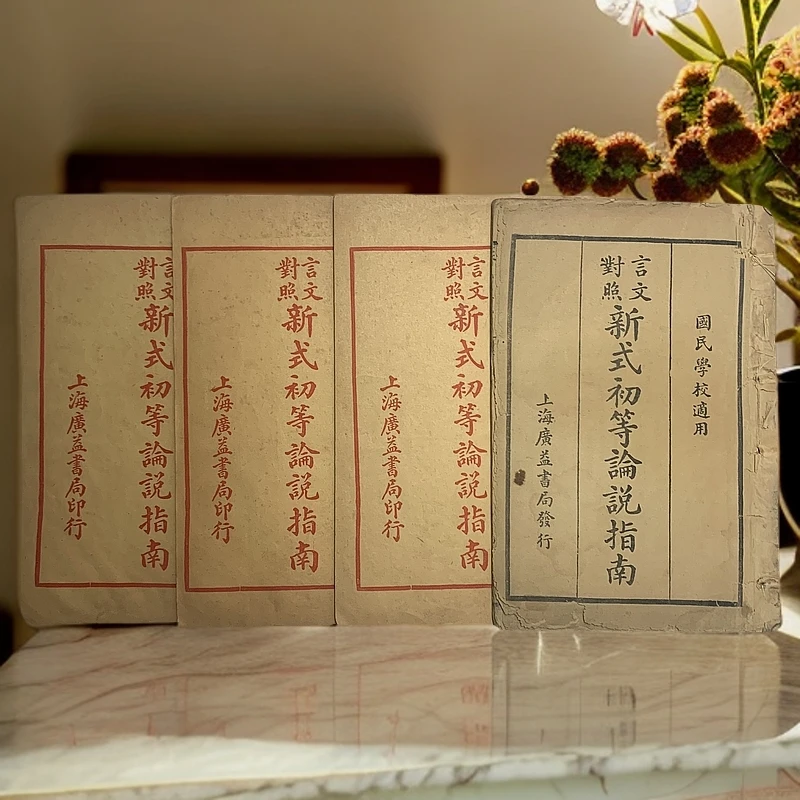 國民學校適用
言文
對照
新式初等論說指南
上海廣益書局發行
言文
對照
新式初等論說指南
上海廣益書局印行
言文
對照
新式初等論說指南
上海廣益書局印行
言文
對照
新式初等論說指南
上海廣益書局印行